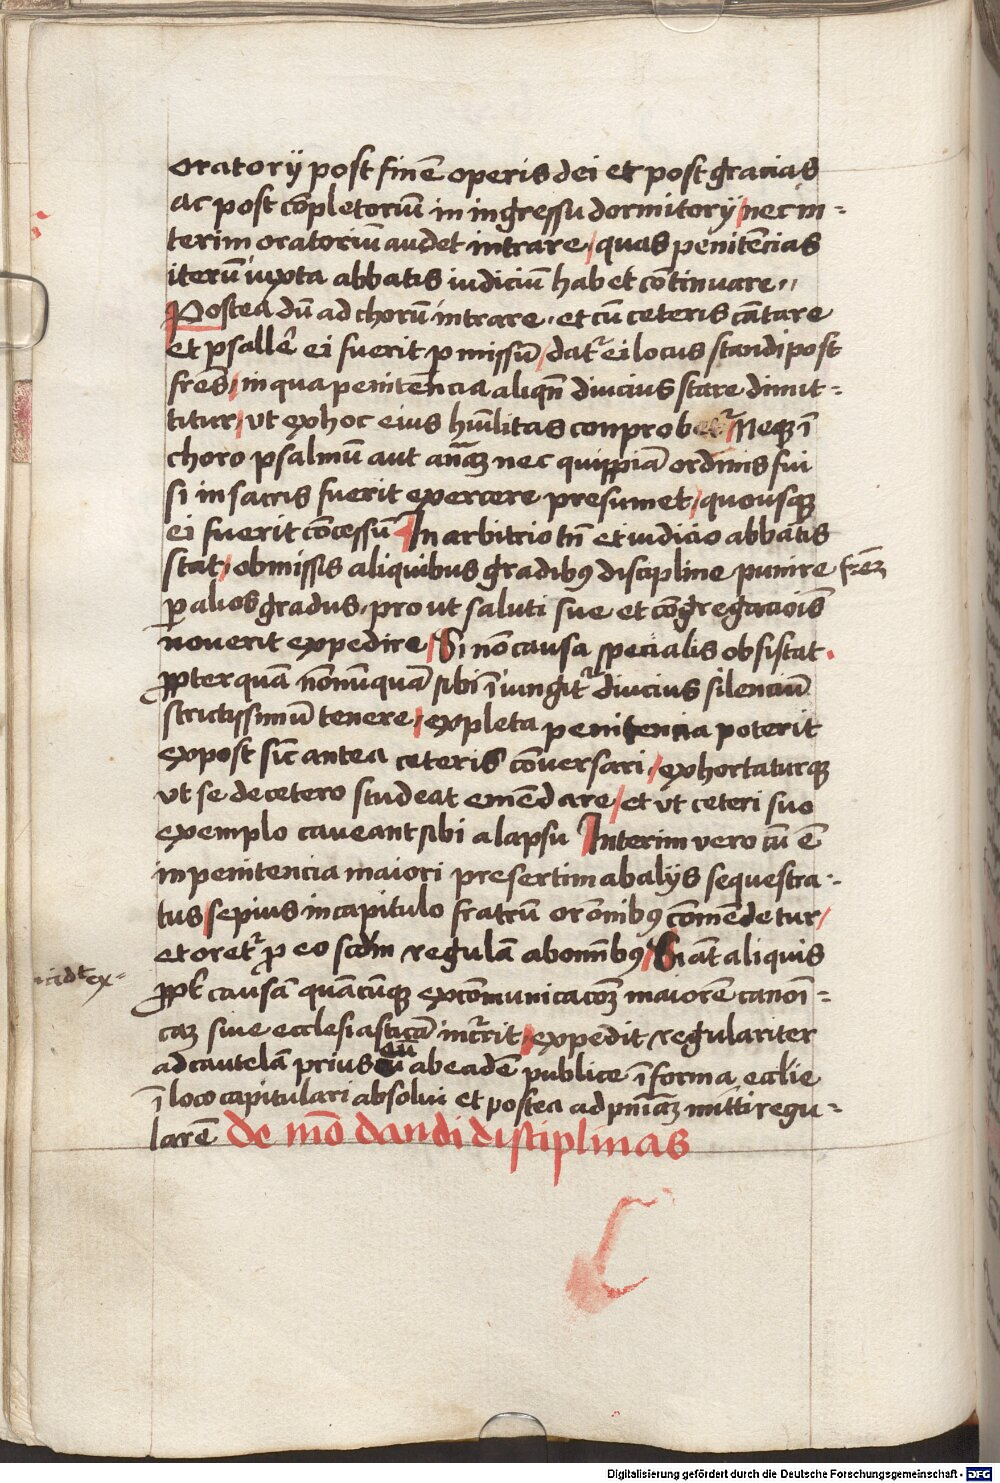 oratorij post finē operis dei et post gracias
ac post cōpletoriū in ingressu dormitorij / nec in=
terim oratoriū audet intrare / quas penitēcias
iterū iuxta abbatis iudiciū habet cōtinuare
Postea dū ad chorū intrare et cū ceteris cātare
et psallē ei fuerit pmissū / datr ei locus standi post
frēs / in qua penitēncia aliqn̄ diucius stare dimit=
titur / vt ex hoc eius hūilitas conprobetr / Neqz ī
choro psalmū aut an̄az nec quippiā ordinis sui
si in sacris fuerit exercere presumet / quousqz
ei fuerit cōcessū / In arbitrio tn̄ et iudicio abbatis
stat / obmissis aliquibus gradibꝯ discipline punire frēz
ꝑ alios gradus pro ut saluti sue et cōgregacōis
nouerit expedire / Si nō causa specialis obsistat
ꝓpter quā nōnūquā sibi īiungitr diucius silenciū
strictissimū tenere / expleta penitencia poterit
ex post sic̄ antea ceteris cōuersari / exhortaturqz
vt se de cetero studeat emēdare / et vt ceteri suo
exemplo caueant sibi a lapsu Interim vero cū ē
in penitencia maiori presertim ab alijs sequestra=
tus / sepius in capitulo fratrū orōnibꝯ cōmendetur /
et oretr ꝓ eo scdm regulā ab om̄ibꝯ / Si aūt aliquis
ꝓpt causā quācūqz excōmunicacōz maiorē canoni=
caz siue ecclesiasticā incrrit / expedit regulariter
eū
ad cautelā prius ab eadē publice ī forma ecclie
ī loco capitulari absolui et postea ad pniāz mitti regu=
larē de mō dandi disciplinas
DFG
Digitalisierung gefördert durch die Deutsche Forschungsgemeinschaft -